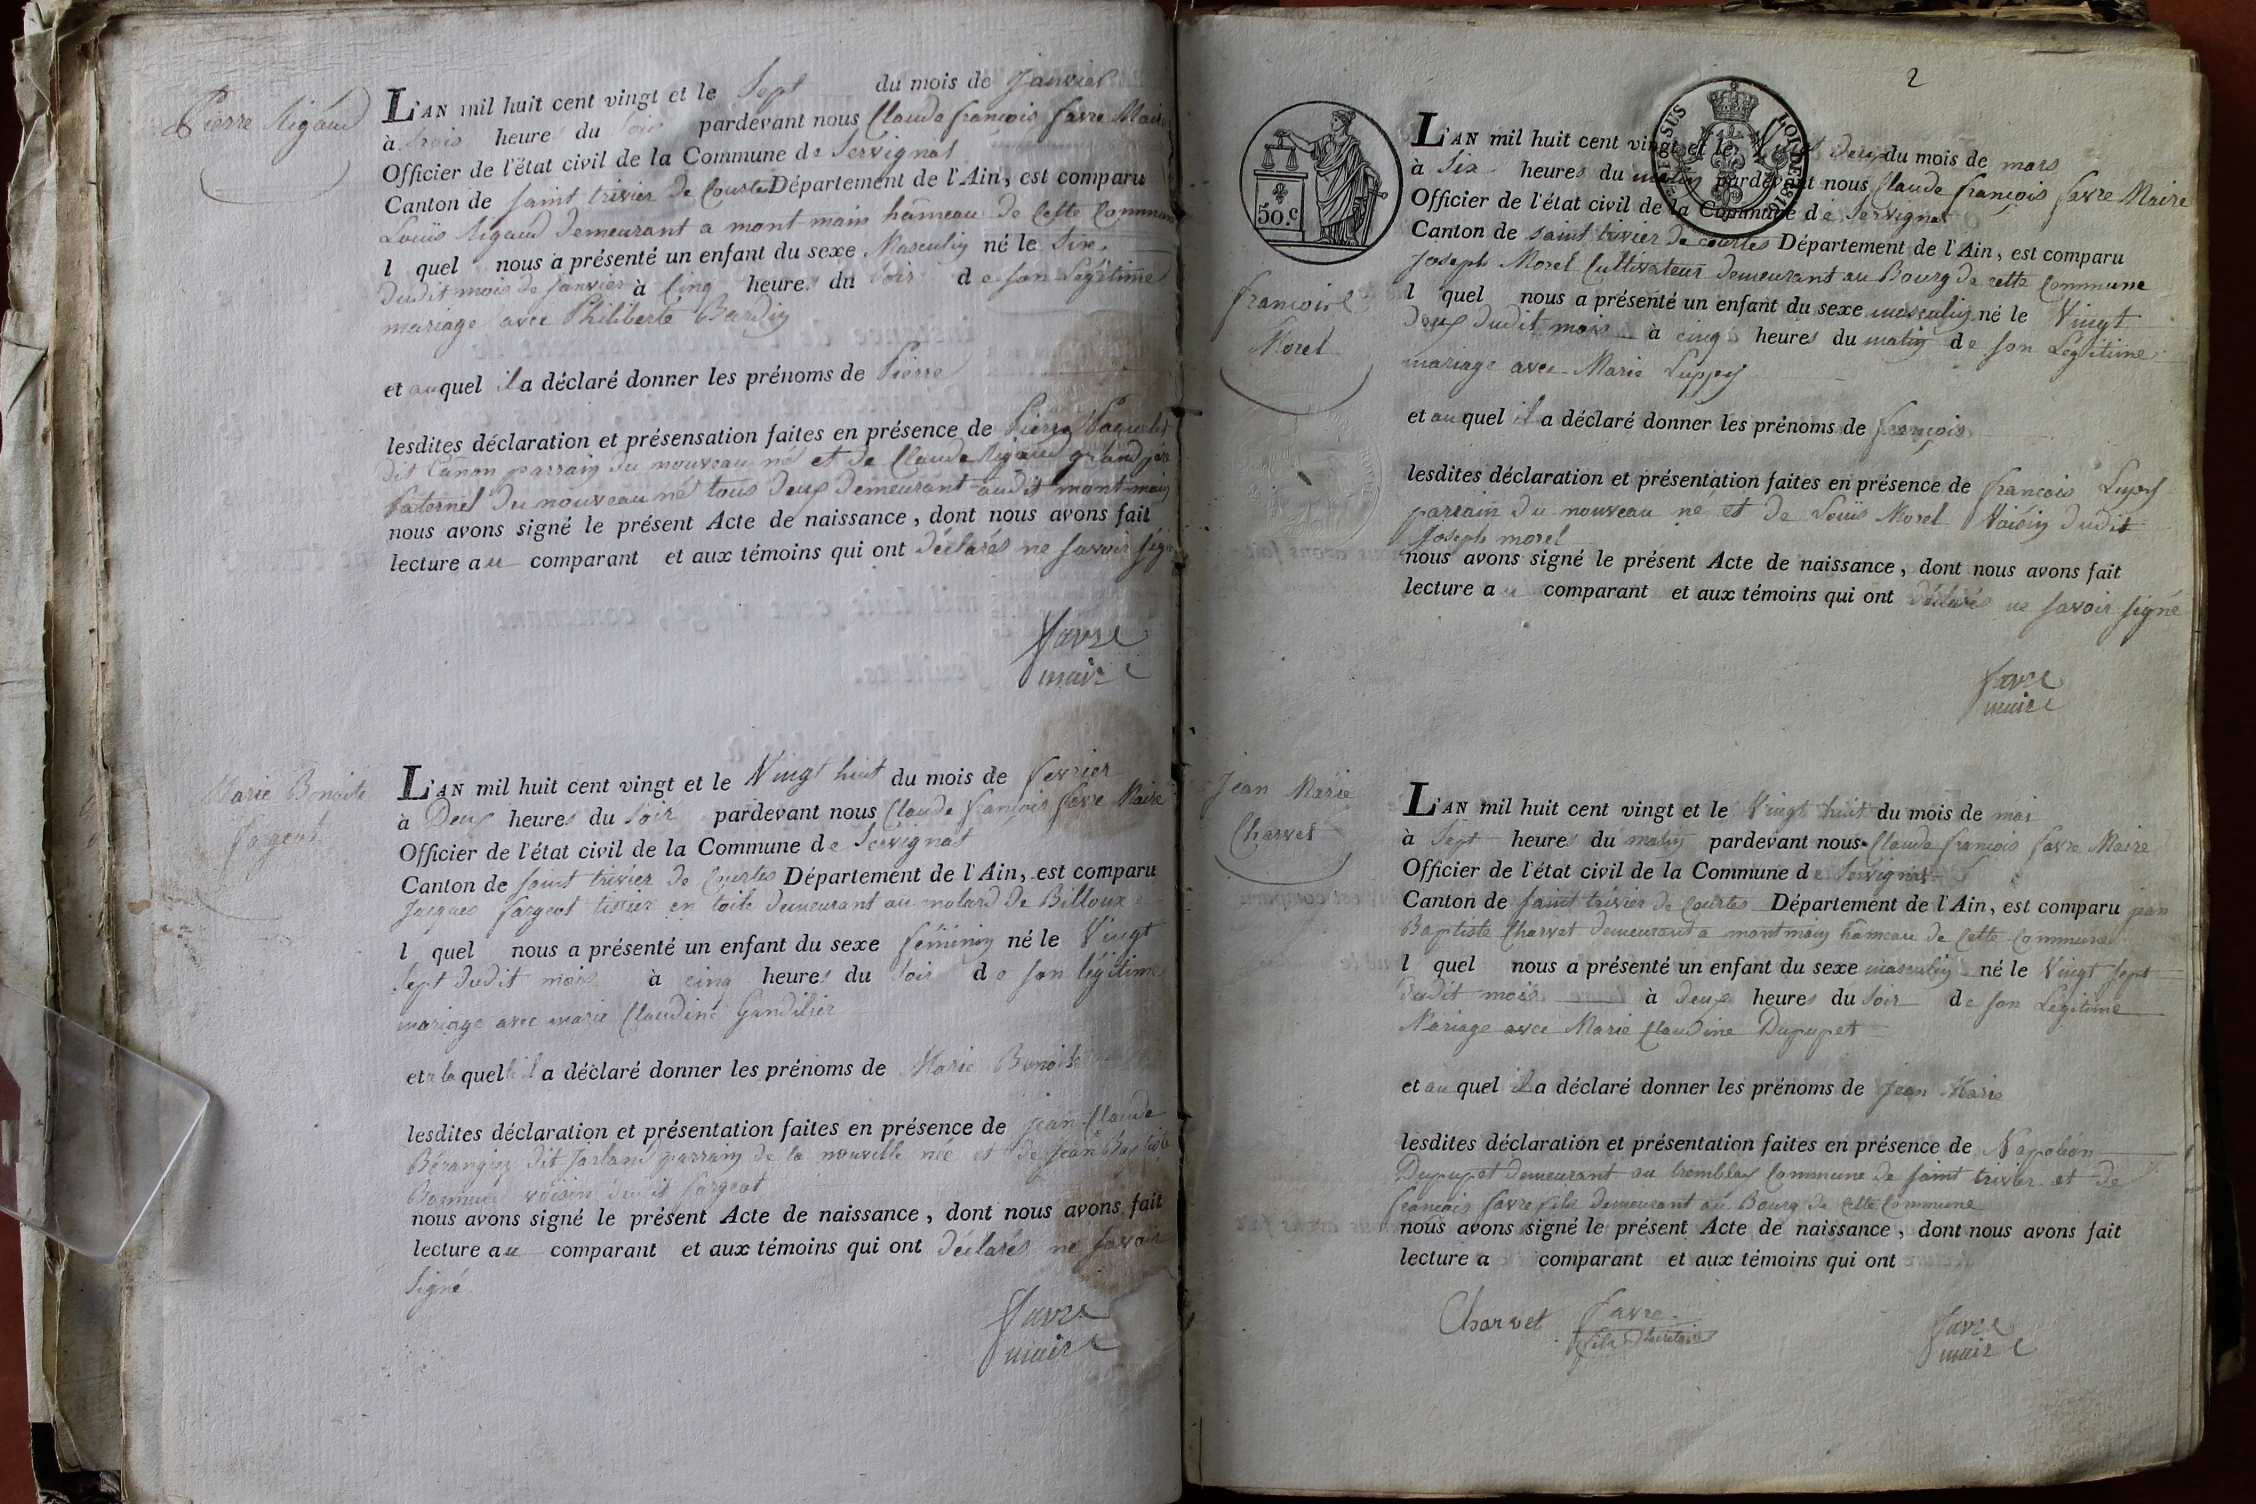 Pierre Rigaud
L'AN mil huit cent vingt et le Sept du mois de janvier
à trois heures du soir pardevant nous Claude françois favre Maire
Officier de l'état civil de la Commune de Servignat
Canton de saint trivier de Courtes Département de l'Ain, est comparu
Louis Rigaud demeurant a mont main hameau de cette Commune
l quel nous a présenté un enfant du sexe Masculin né le six
dudit mois de janvier à cinq heures du soir de son légitime
mariage avec Philiberte Bardin
et auquel il a déclaré donner les prénoms de Pierre
lesdites déclaration et présensation faites en présence de Pierre
dit Canon parrain du nouveau né et de Claude Rigaud grand père
Paternel du nouveau né tous deux demeurant audit mont main
nous avons signé le présent Acte de naissance, dont nous avons fait
lecture au comparant et aux témoins qui ont déclarés ne savoir signé
favre
maire
Marie Benoite
fargeot
L'AN mil huit cent vingt et le Vingt huit du mois de fevrier
à Deux heures du soir pardevant nous Claude françois favre Maire
Officier de l'état civil de la Commune de Servignat
Canton de saint trivier de Courtes Département de l'Ain, est comparu
Jacques fargeot tissier en toile demeurant au molard de Billoux
l quel nous a présenté un enfant du sexe féminin né le Vingt
sept dudit mois à cinq heures du soir de son légitime
mariage avec marie Claudine Gandilier
et a la quelle il a déclaré donner les prénoms de Marie Benoite
lesdites déclaration et présentation faites en présence de jean Claude
dit parrain de la nouvelle née et de jean Baptiste
voisin dudit fargeot
nous avons signé le présent Acte de naissance, dont nous avons fait
lecture au comparant et aux témoins qui ont déclarés ne savoir
signé
favre
maire
2
50.c
LEX EST SUS
françois
Morel
L'AN mil huit cent vingt et le Vingt deux du mois de mars
à six heures du matin pardevant nous Claude françois favre Maire
Officier de l'état civil de la Commune de Servignat
Canton de saint trivier de courtes Département de l'Ain, est comparu
Joseph Morel Cultivateur demeurant au Bourg de cette Commune
l quel nous a présenté un enfant du sexe masculin né le Vingt
deux dudit mois à cinq heures du matin de son Legitime
mariage avec Marie Luppy
et au quel il a déclaré donner les prénoms de françois
lesdites déclaration et présentation faites en présence de françois
parrain du nouveau né et de Louis Morel Voisin dudit
Joseph morel
nous avons signé le présent Acte de naissance, dont nous avons fait
lecture au comparant et aux témoins qui ont déclarés ne savoir signé
favre
maire
Jean Marie
Charvet
L'AN mil huit cent vingt et le Vingt huit du mois de mai
à Sept heures du matin pardevant nous Claude françois favre Maire
Officier de l'état civil de la Commune de Servignat
Canton de saint trivier de Courtes Département de l'Ain, est comparu jean
Baptiste Charvet demeurant a montmain hameau de cette Commune
l quel nous a présenté un enfant du sexe masculin né le Vingt sept
dudit mois à deux heures du soir de son Legitime
Mariage avec Marie Claudine Dupupet
et au quel il a déclaré donner les prénoms de Jean Marie
lesdites déclaration et présentation faites en présence de Napoléon
Dupupet demeurant au tremblay Commune de saint trivier et de
françois favre fils demeurant au Bourg de cette Commune
nous avons signé le présent Acte de naissance, dont nous avons fait
lecture a comparant et aux témoins qui ont
Charvet favre favre
fils secretaire maire